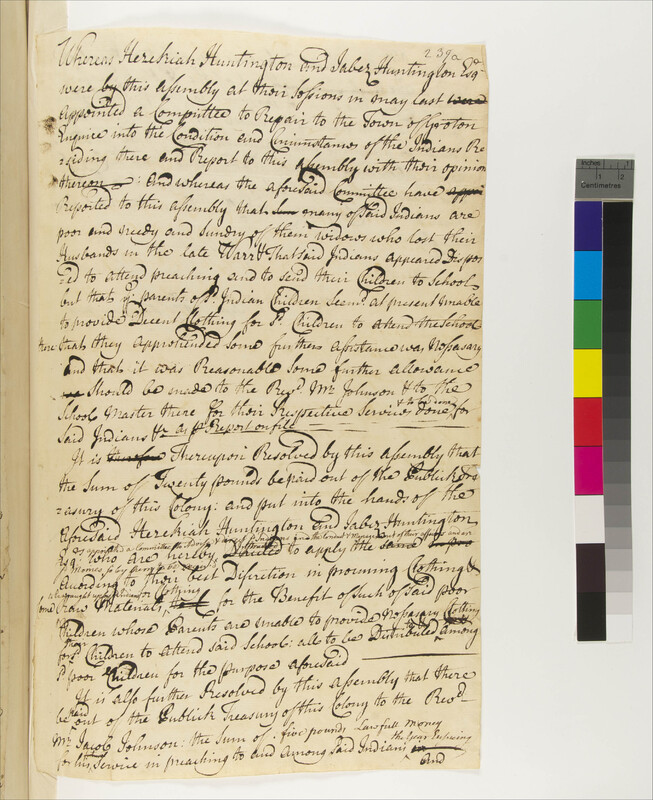 239a
Whereas Hezekiah Huntington and Jabez Huntington Esqr
were by this assembly at their Sessions in may last were
appointed a Committee to Repair to the Town of Groton
Enquire into the Condition and Circumstances of the Indians Re
=siding there and Report to this assembly with their opinion
thereon : and whereas the aforesaid Committee have
Reported to this assembly that many of said Indians are
poor and needy and Sundry of them widows who lost their
Husbands in the late Warr & That said Indians appeared Dispos
=ed to attend preaching and to send their Children to School
but that ye parents of sd Indian Children Seemd at present unable
to provide Decent Clothing for sd Children to attend the School
there that they apprehended some further assistance was Nessasary
and that it was Reasonable some further allowance
Should be made to the Revd Mr Johnson & to the
School Master there for their Respective Services done for
Said Indians &c as pr Report on file
It is therefore Thereupon Resolved by this assembly that
the Sum of Twenty pounds be paid out of the Publick Tre
=asury of this Colony : and put into the hands of the
aforesaid Hezekiah Huntington and Jabez Huntington
who are hereby Directed to apply the same
according to their best Discretion in procuring Clothing &
some Raw Materials for Clothing for the Benefit of such of said poor
Children whose Parents are unable to provide Nessasary Clothing
for sd Children to attend said School : all to be Distributed among
sd poor Children for the purpose aforesaid
It is also further Resolved by this assembly that there
be paid out of the Publick Treasury of this Colony to the Revd
Mr Jacob Johnson : the sum of five pounds Lawfull money
for his Service in preaching to and among said Indians the year Ensuing
And
inches
1
2
Centimetres